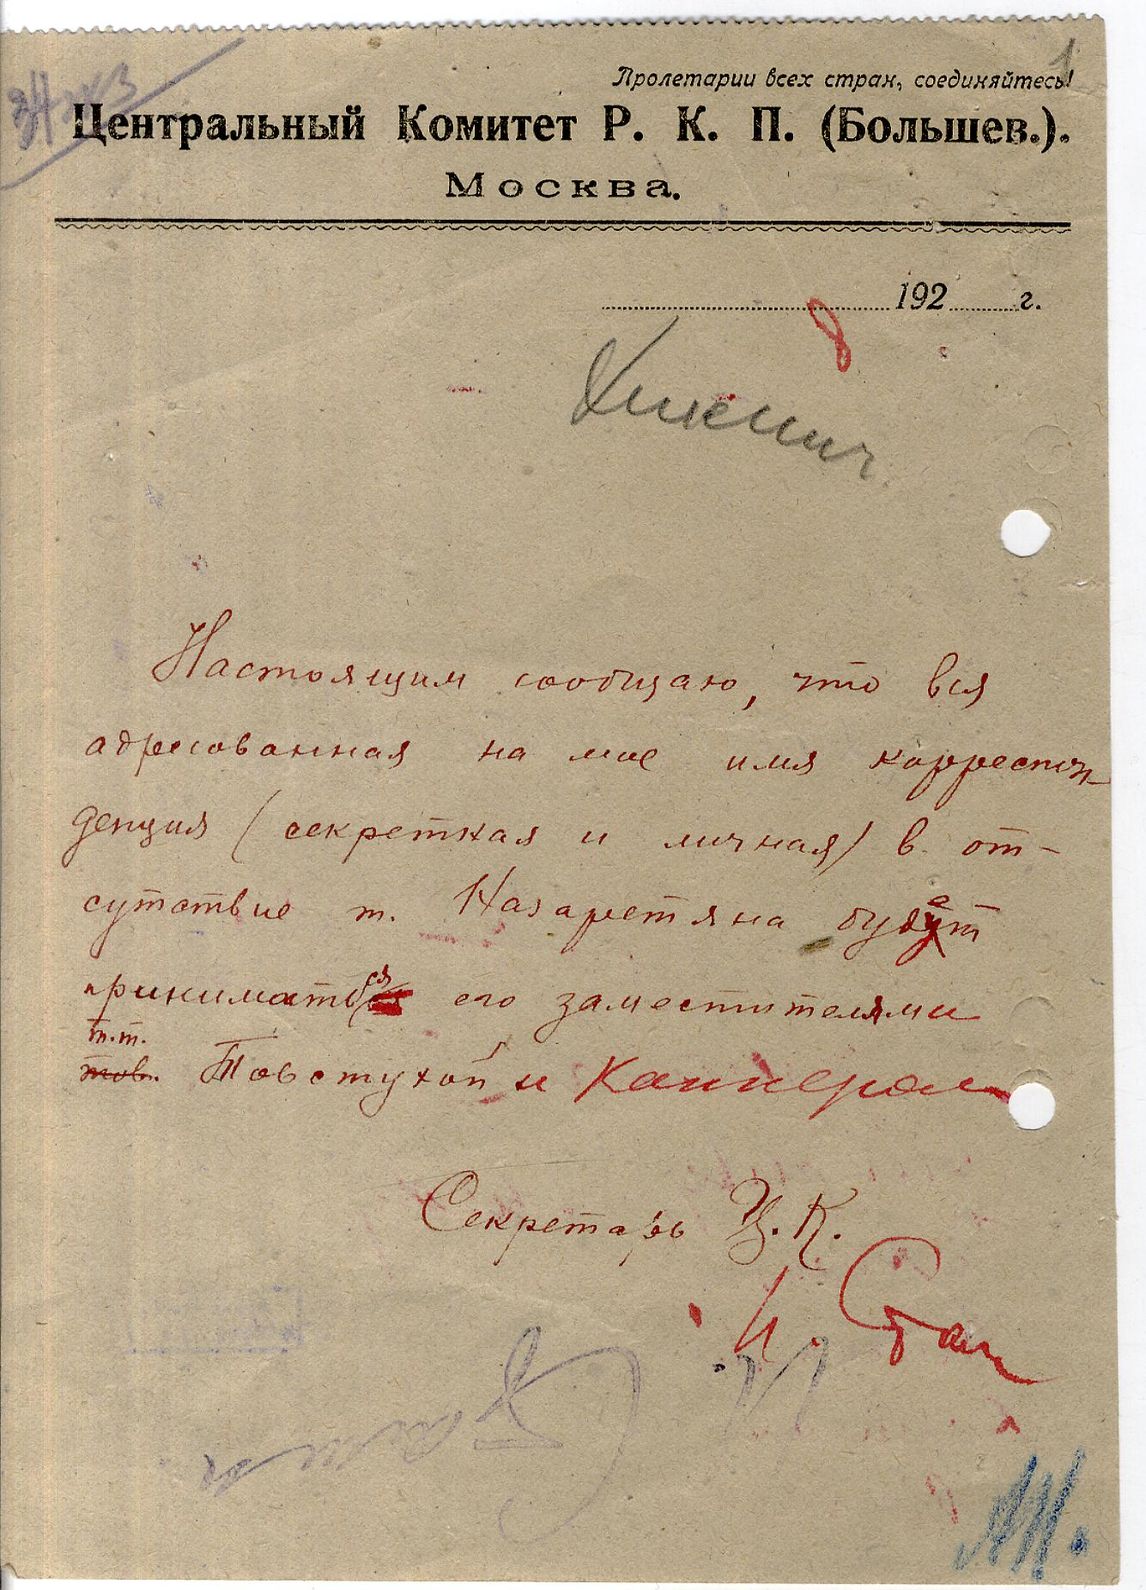 1
Пролетарии всех стран, соединяйтесь!
Центральный Комитет Р. К. П. (Большев.).
Москва.
192 г.
Настоящим сообщаю, что вся
адресованная на мое имя корреспон-
денция (секретная и личная) в от-
сутствие т. Назаретяна будет
приниматься его заместителями
т.т.
тов. Товстухой и Каннером
Секретарь Ц.К.
И. Сталин